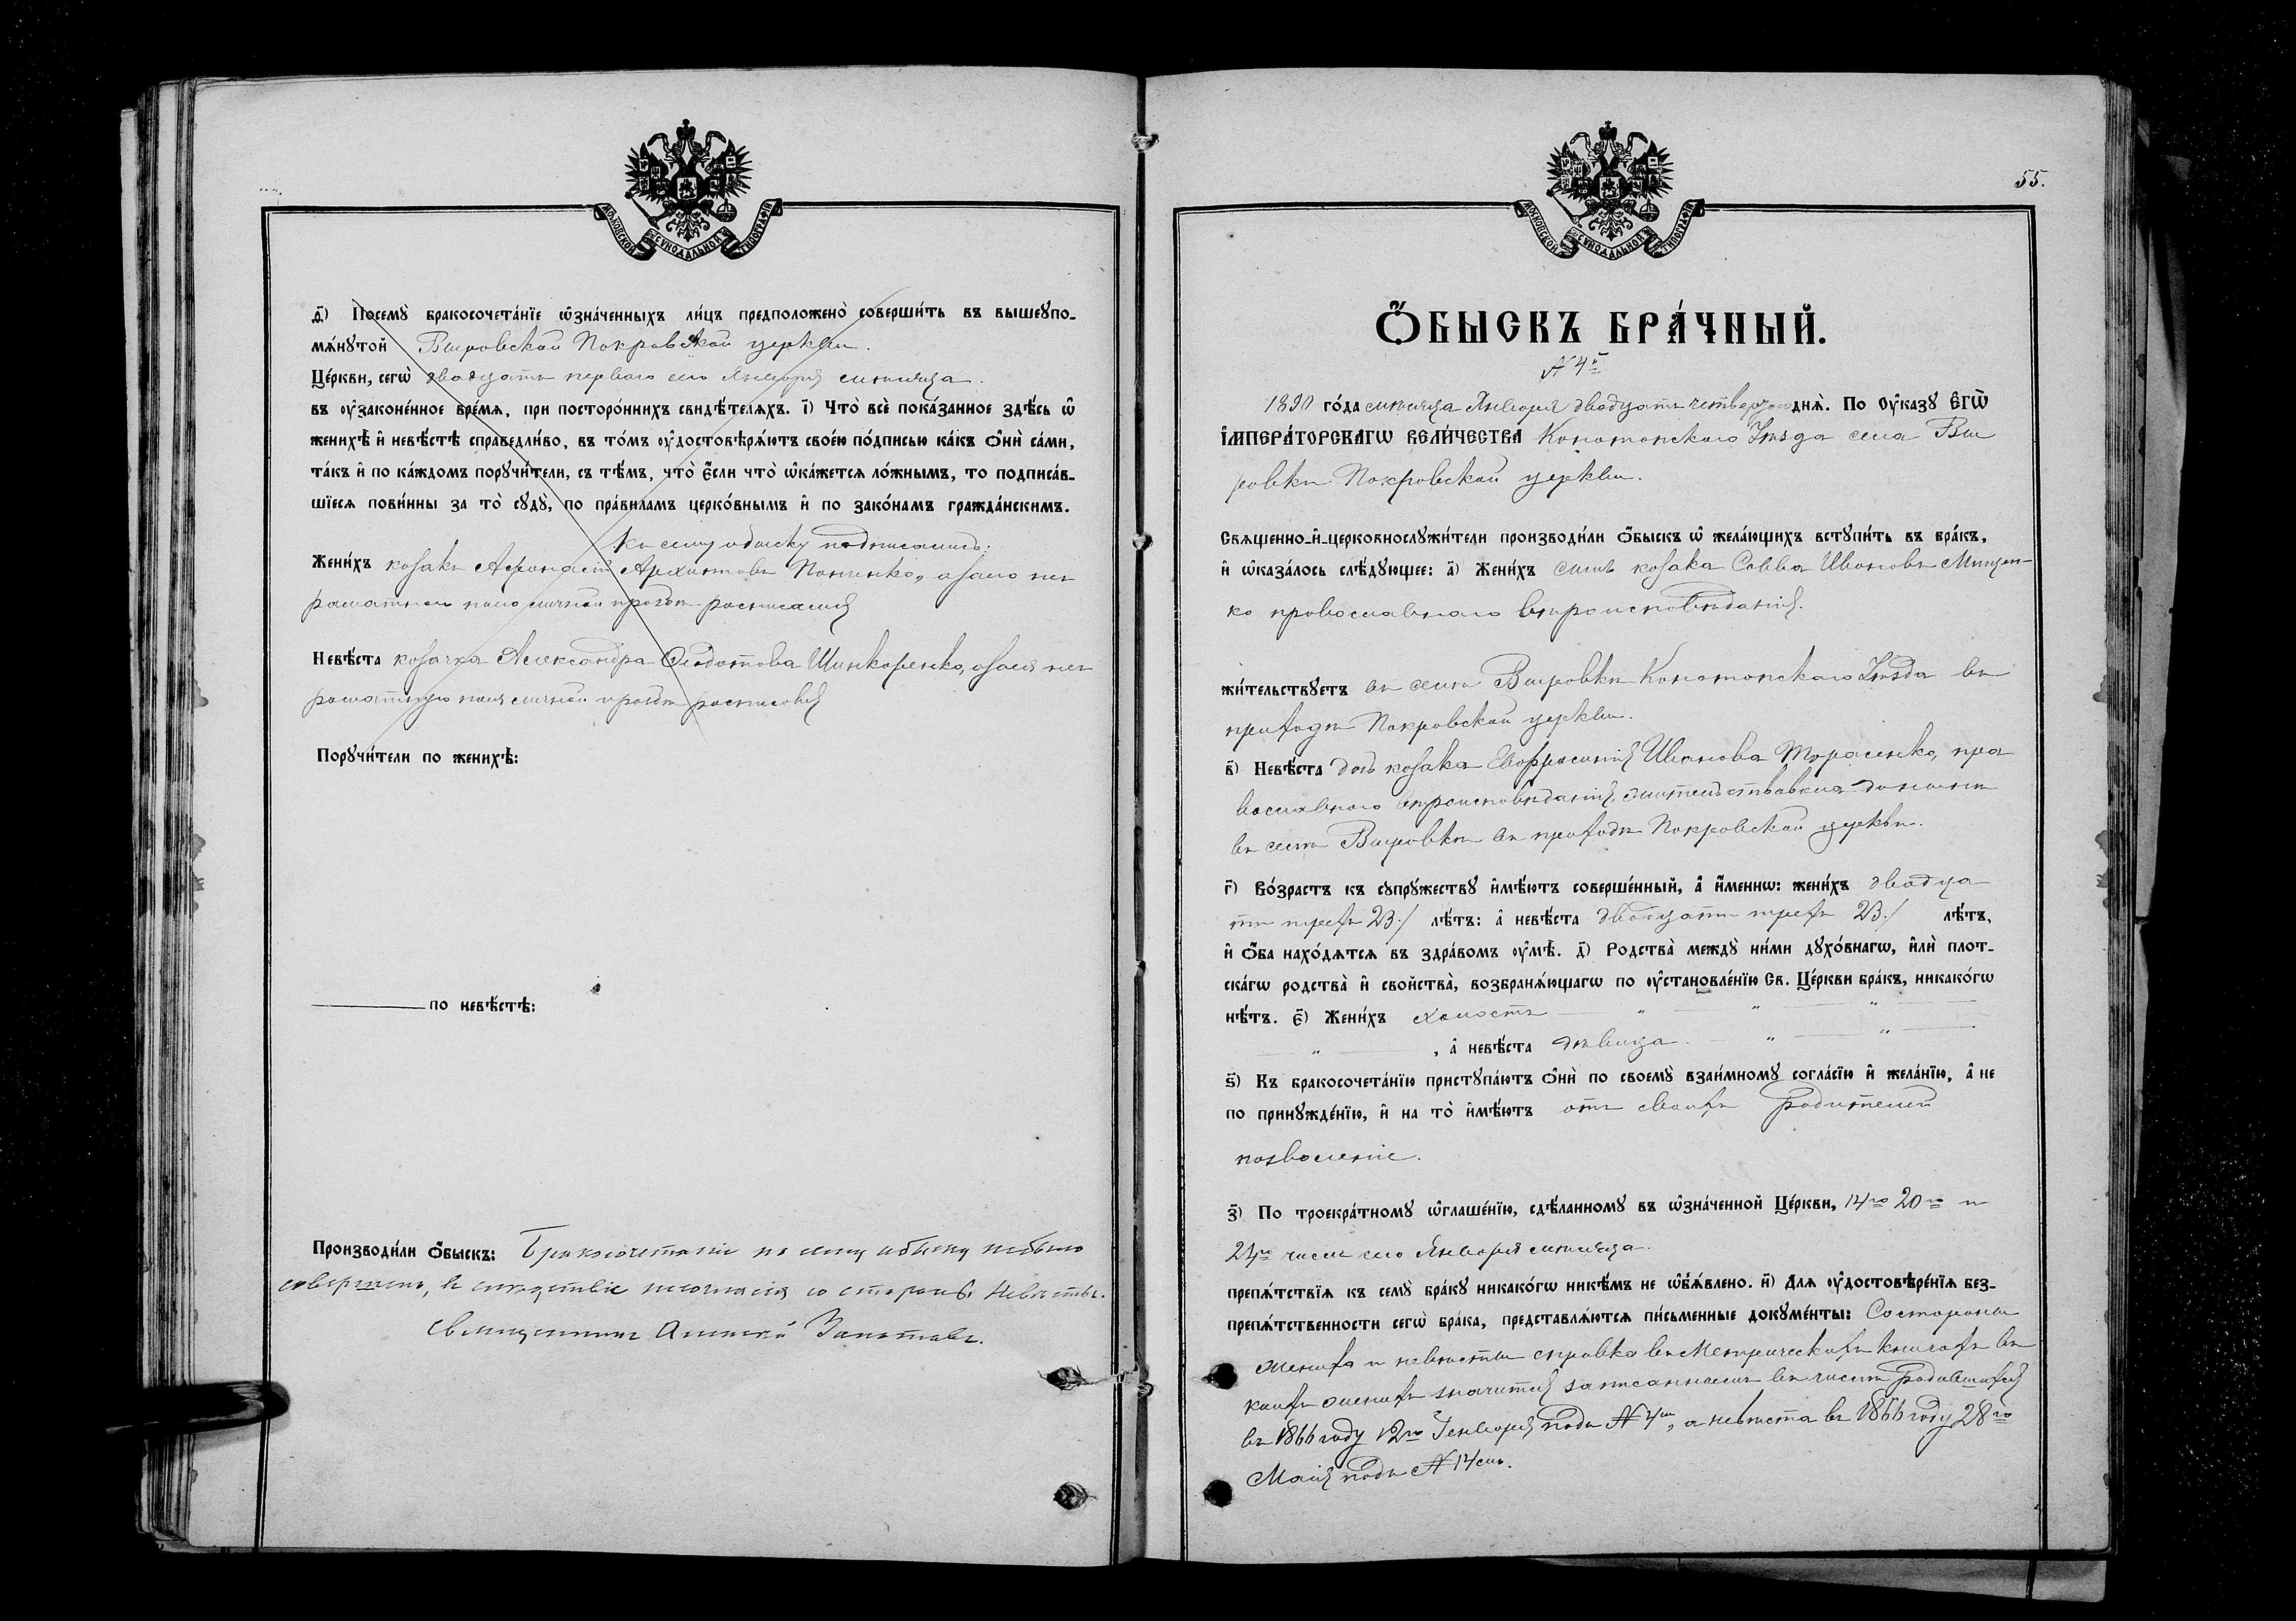 МОСКОВСКОЙ СѴНОДАЛЬНОЙ ТИПОГРАФІИ
ѳ҃) Посемꙋ̀ бракосочета́нїе ѡ҆зна́ченныхъ ли́цъ предположено̀ соверши́ть въ вышеꙋпо-
мѧ́нꙋтой Вировской Покровской церкви.
Це́ркви, сегѡ̀ двадцать перваго сего Января мѣсяца.
въ ᲂу҆законе́нное вре́мѧ, при посторо́ннихъ свидѣ́телѧхъ. і҃) Что̀ всѐ пока́занное здѣ́сь ѡ҆
женихѣ̀ и҆ невѣ́стѣ справедли́во, въ то́мъ ᲂу҆достовѣрѧ́ютъ свое́ю по́дписью ка́къ ѻ҆нѝ са́ми,
та́къ и҆ по ка́ждомъ порꙋчи́тели, съ тѣ́мъ, что̀ є҆́сли что̀ ѡ҆ка́жетсѧ ло́жнымъ, то подписа́в-
шїесѧ пови́нны за то̀ сꙋдꙋ̀, по пра́виламъ церко́внымъ и҆ по зако́намъ гражда́нскимъ.
Къ сему обыску подписались:
Жени́хъ козакъ Афанасій Архиповъ, а за его нег
рамотнаго по его личной прозьбѣ росписался
Невѣ́ста козачка Александра Ѳедотова Шинкаренко, а за нея нег
рамотную по ея личной прозьбѣ росписался
Порꙋчи́тели по женихѣ̀:
по невѣ́стѣ:
Производи́ли ѻ҆́быскъ: Бракосочетаніе по сему обыску небыло
совершено, въ слѣдствіе несогласія со стороны Невѣсты.
Священникъ Алексѣй
55.
МОСКОВСКОЙ СѴНОДАЛЬНОЙ ТИПОГРАФІИ
Ѻ҆́БЫСКЪ БРА́ЧНЫЙ.
№ 4й
1890 го́да мѣсяца Января двадцать четвертаго днѧ̀. По Оу҆ка́зꙋ Є҆ГѠ̀
І҆МПЕРА́ТОРСКАГѠ ВЕЛИ́ЧЕСТВА Конотопскаго Уѣзда села Ви
ровки Покровской церкви.
Свѧщенно-и҆-церковнослꙋжи́тели производи́ли ѻ҆́быскъ ѡ҆ жела́ющихъ встꙋпи́ть въ бра́къ,
и҆ ѡ҆каза́лось слѣ́дꙋющее: а҃) Жени́хъ сынъ козака Савва Ивановъ Мищен-
ко православнаго вѣроисповѣданія.
жи́тельствꙋетъ въ селѣ Вировкѣ Конотопскаго Уѣзда въ
приходѣ Покровской церкви.
в҃) Невѣ́ста дочь козака Евфросинія Иванова Тарасенко, пра
вославнаго вѣроисповѣданія, жительствовала донынѣ
въ селѣ Вировкѣ въ приходѣ Покровской церкви.
г҃) Во́зрастъ къ сꙋпрꙋ́жествꙋ и҆мѣ́ютъ соверше́нный, а҆ и҆́меннѡ: жени́хъ двадца
ти трехъ 23./ лѣ́тъ: а҆ невѣ́ста двадцати трехъ 23./ лѣ́тъ,
и҆ ѻ҆́ба нахо́дѧтсѧ въ здра́вомъ ᲂу҆мѣ̀. д҃) Родства̀ междꙋ̀ ни́ми дꙋхо́внагѡ, и҆лѝ плот-
ска́гѡ родства̀ и҆ свойства̀, возбранѧ́ющагѡ по ᲂу҆становле́нїю Св. Це́ркви бра́къ, никако́гѡ
нѣ́тъ. є҃) Жени́хъ холостъ — „ — „ — „ —
— „ —, а҆ невѣ́ста дѣвица. — „ — „ —
ѕ҃) Къ бракосочета́нїю пристꙋпа́ютъ ѻ҆нѝ по своемꙋ̀ взаи́мномꙋ согла́сїю и҆ жела́нїю, а҆ не
по принꙋжде́нїю, и҆ на то̀ и҆мѣ́ютъ отъ своихъ Родителей
позволеніе.
з҃) По троекра́тномꙋ ѡ҆глаше́нїю, сдѣ́ланномꙋ въ ѡ҆зна́ченной Це́ркви, 14го 20го и
21го числъ сего Января мѣсяца.
препѧ́тствїѧ къ семꙋ̀ бра́кꙋ никако́гѡ никѣ́мъ не ѡ҆б̾ѧ́влено. и҃) Длѧ ᲂу҆достовѣре́нїѧ без-
препѧ́тственности сегѡ̀ бра́ка, представлѧ́ютсѧ пи́сьменные докꙋме́нты: Со стороны
жениха и невѣсты справка въ Метрическихъ книгахъ въ
коихъ женихъ значится записаннымъ въ числѣ Родившихся
въ 1866 году 12го Генваря подъ № 4мъ, а невѣста въ 1866 году 28го
Маія подъ № 14мъ.